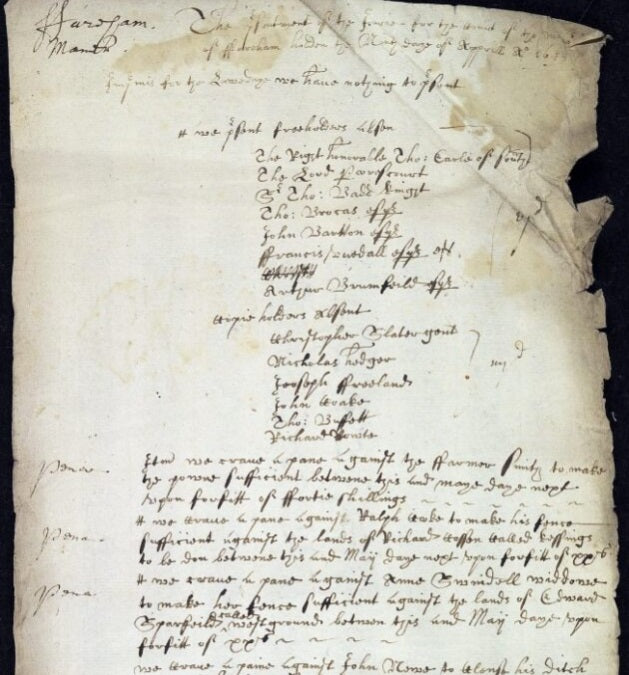 ffareham
Manor
The psentment of the Jurie for the
of ffareham holden the daye of Aprill
Imprimis for the we have nothing to psent
we psent freeholders absen
The Right honorable Tho: Earle of South
The Lord
Sr Tho: knight
Tho: Brocas esqr
John Barton esqr
ffrancis esqr
Arthur Brumfeild esqr
Copie holders absent
Christopher Slater gent
Nicholas hedger
iiij d
Joseph ffreeland
John Coake
Tho: Bussett
Richard
Pena
Itm we crave a pane against the ffarmer to make
the powne sufficient betwene this and maye daye next
vpon forfitt of ffortie shillings
Pena
we crave a pane against Ralph Coke to make his fence
sufficient against the lands of Richard Cossen called
to be don betwene this and May daye next vpon forfitt of xxs
Pena
we crave a pane against Anne Swindell widdowe
to make her fence sufficient against the lands of Edward
Sparkeild called westground betwen this and May daye vpon
forfitt of xxs
we crave a paine against John Newe to clense his ditch